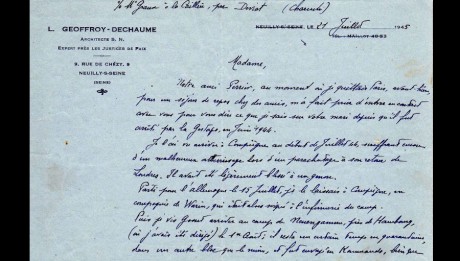 L. GEOFFROY-DECHAUME
ARCHITECTE S. N.
EXPERT PRÈS LES JUSTICES DE PAIX
9, RUE DE CHÉZY, 9
NEUILLY-S-SEINE
(SEINE)
NEUILLY-S-SEINE, LE 21 Juillet 1945
TEL. MAILLOT
Madame,
Notre ami Poirier, au moment où je quittais Paris, avant hier
pour un séjour de repos chez des amis, m'a fait prier d'entrer en contact
avec vous pour vous dire ce que je sais sur votre mari depuis qu'il fut
arrêté par la Gestapo, en Juin 1944.
Je l'ai vu arriver à Compiègne au début de Juillet 44, souffrant encore
d'un malheureux atterrissage lors d'un parachutage à son retour de
Londres. Il avait été légèrement blessé à un genou.
Parti pour l'Allemagne le 15 Juillet, je le laissais à Compiègne, en
compagnie de Warin, qui était alors soigné à l'infirmerie du camp.
Puis je vis arriver au camp de Neuengamme, près de Hambourg,
(où j'avais été dirigé) le 1er Août; il resta un certain temps en quarantaine,
dans un autre bloc que le mien, et fut envoyé en Kommando,